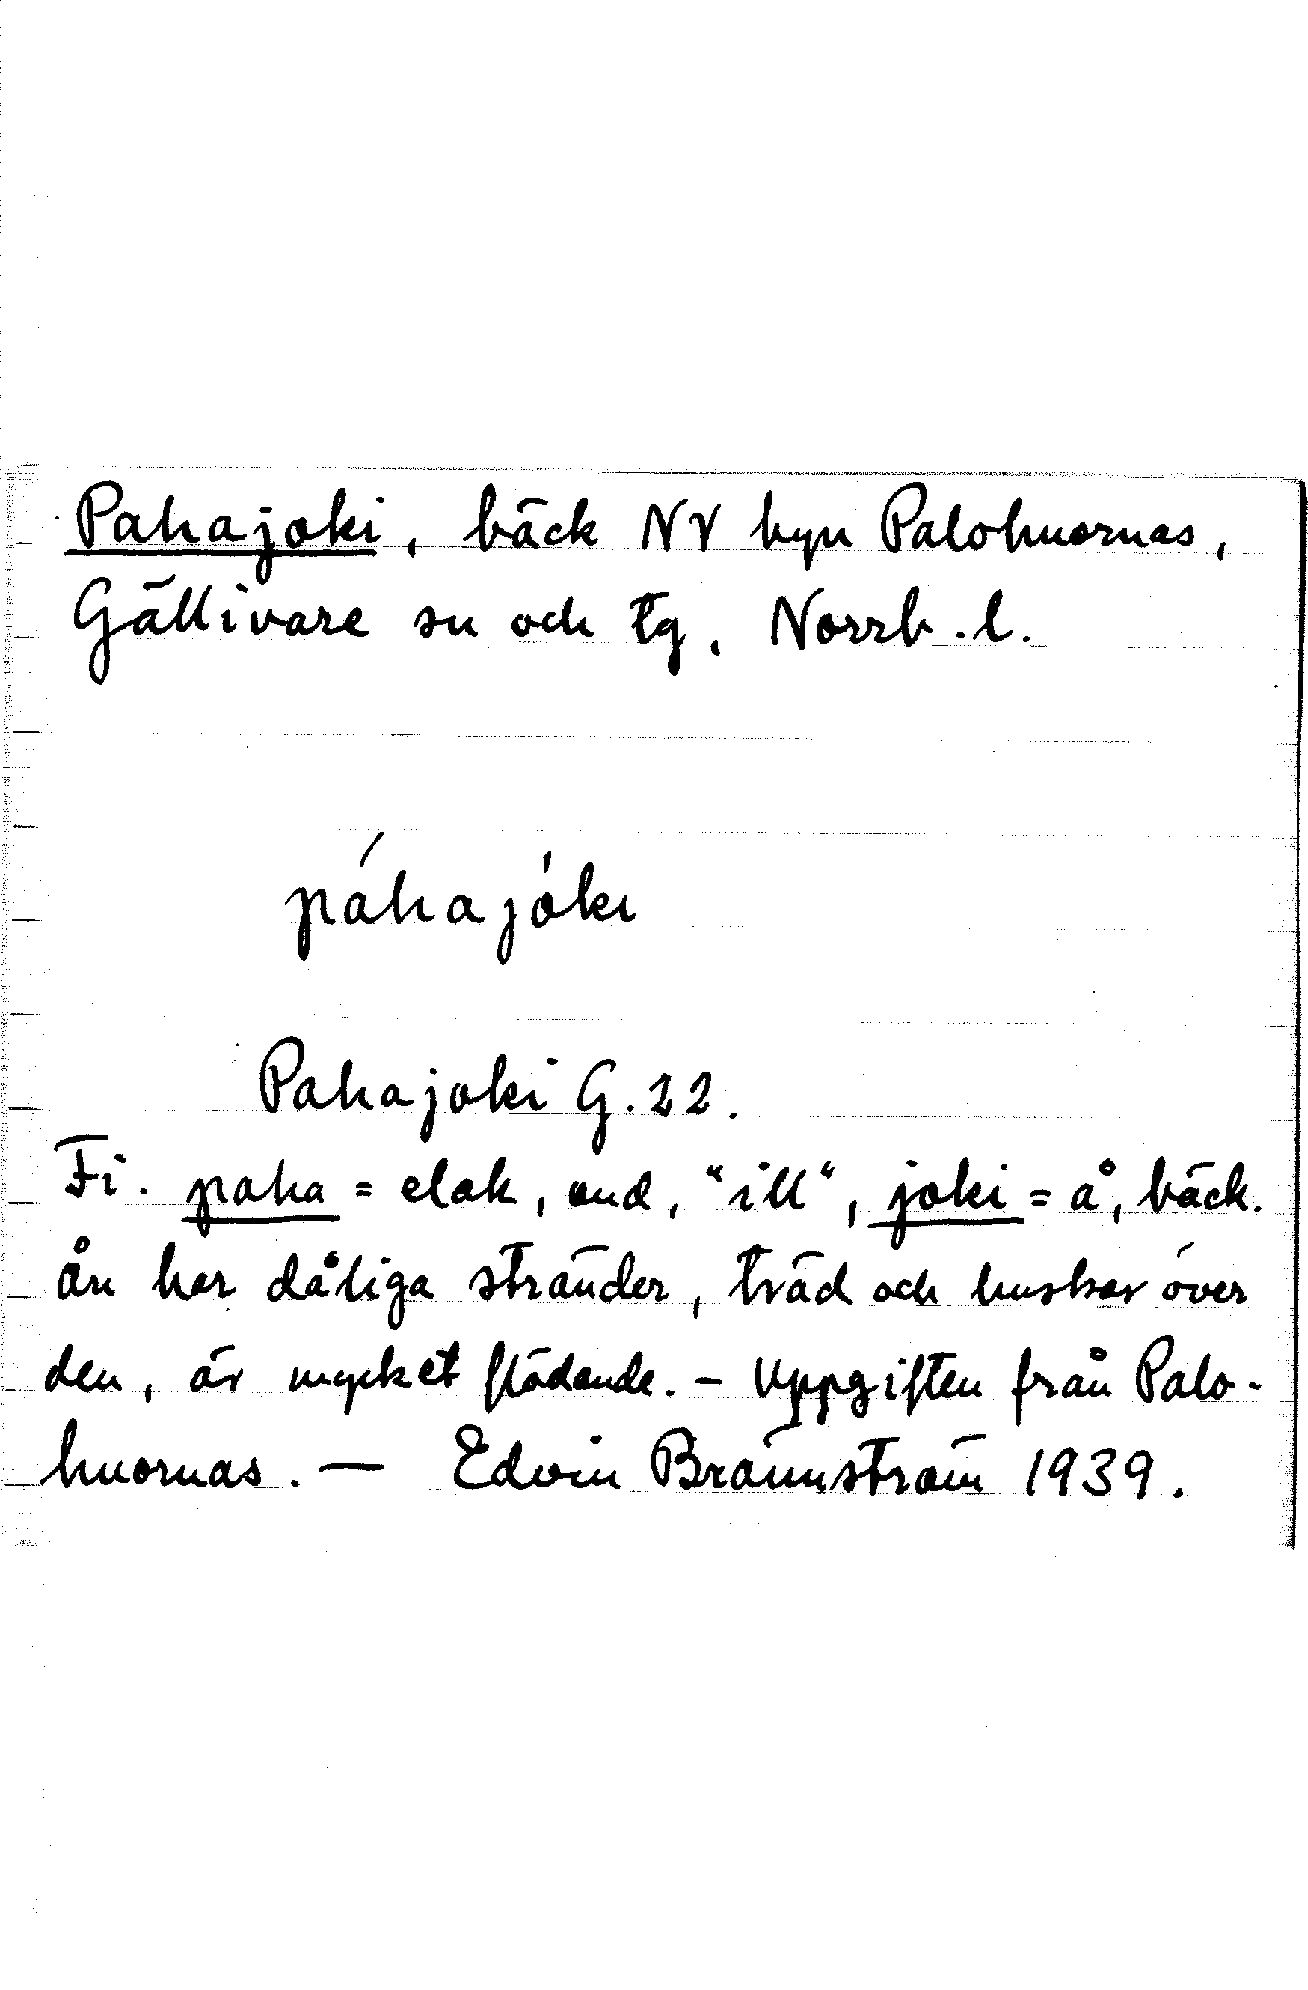 Pahajoki, bäck NV byn Palohuornas,
Gällivare sn och tg, Norrb. l.
páhajóki
Pahajoki G. 22.
Fi. paha = elak, ond, "ill", joki = å, bäck.
Ån har dåliga stränder, träd och buskar över
den, är mycket flödande. - Uppgiften från Palo-
huornas. — Edvin Brännström 1939.